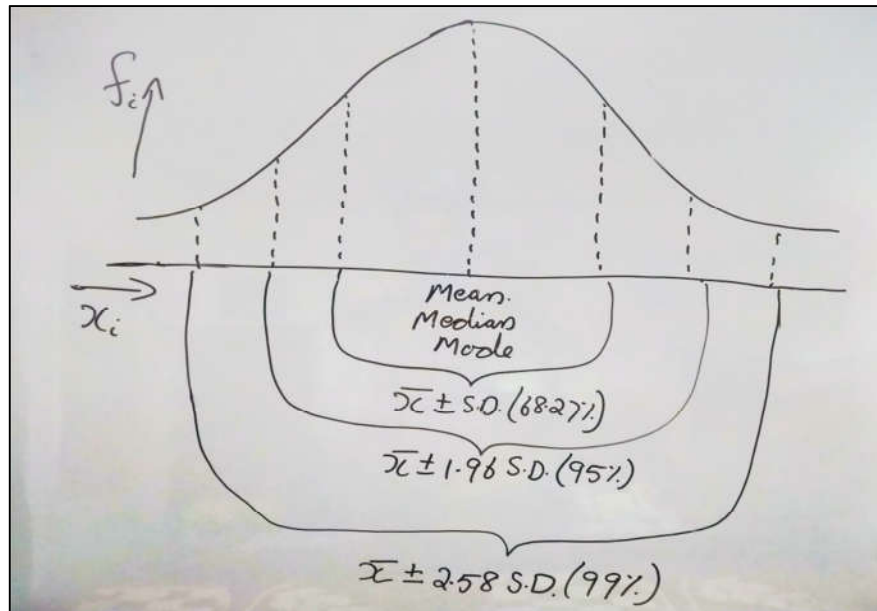 fᵢ
xᵢ
Mean.
Median
Mode
x̄ ± S.D. (68.27%)
x̄ ± 1.96 S.D. (95%)
x̄ ± 2.58 S.D. (99%)